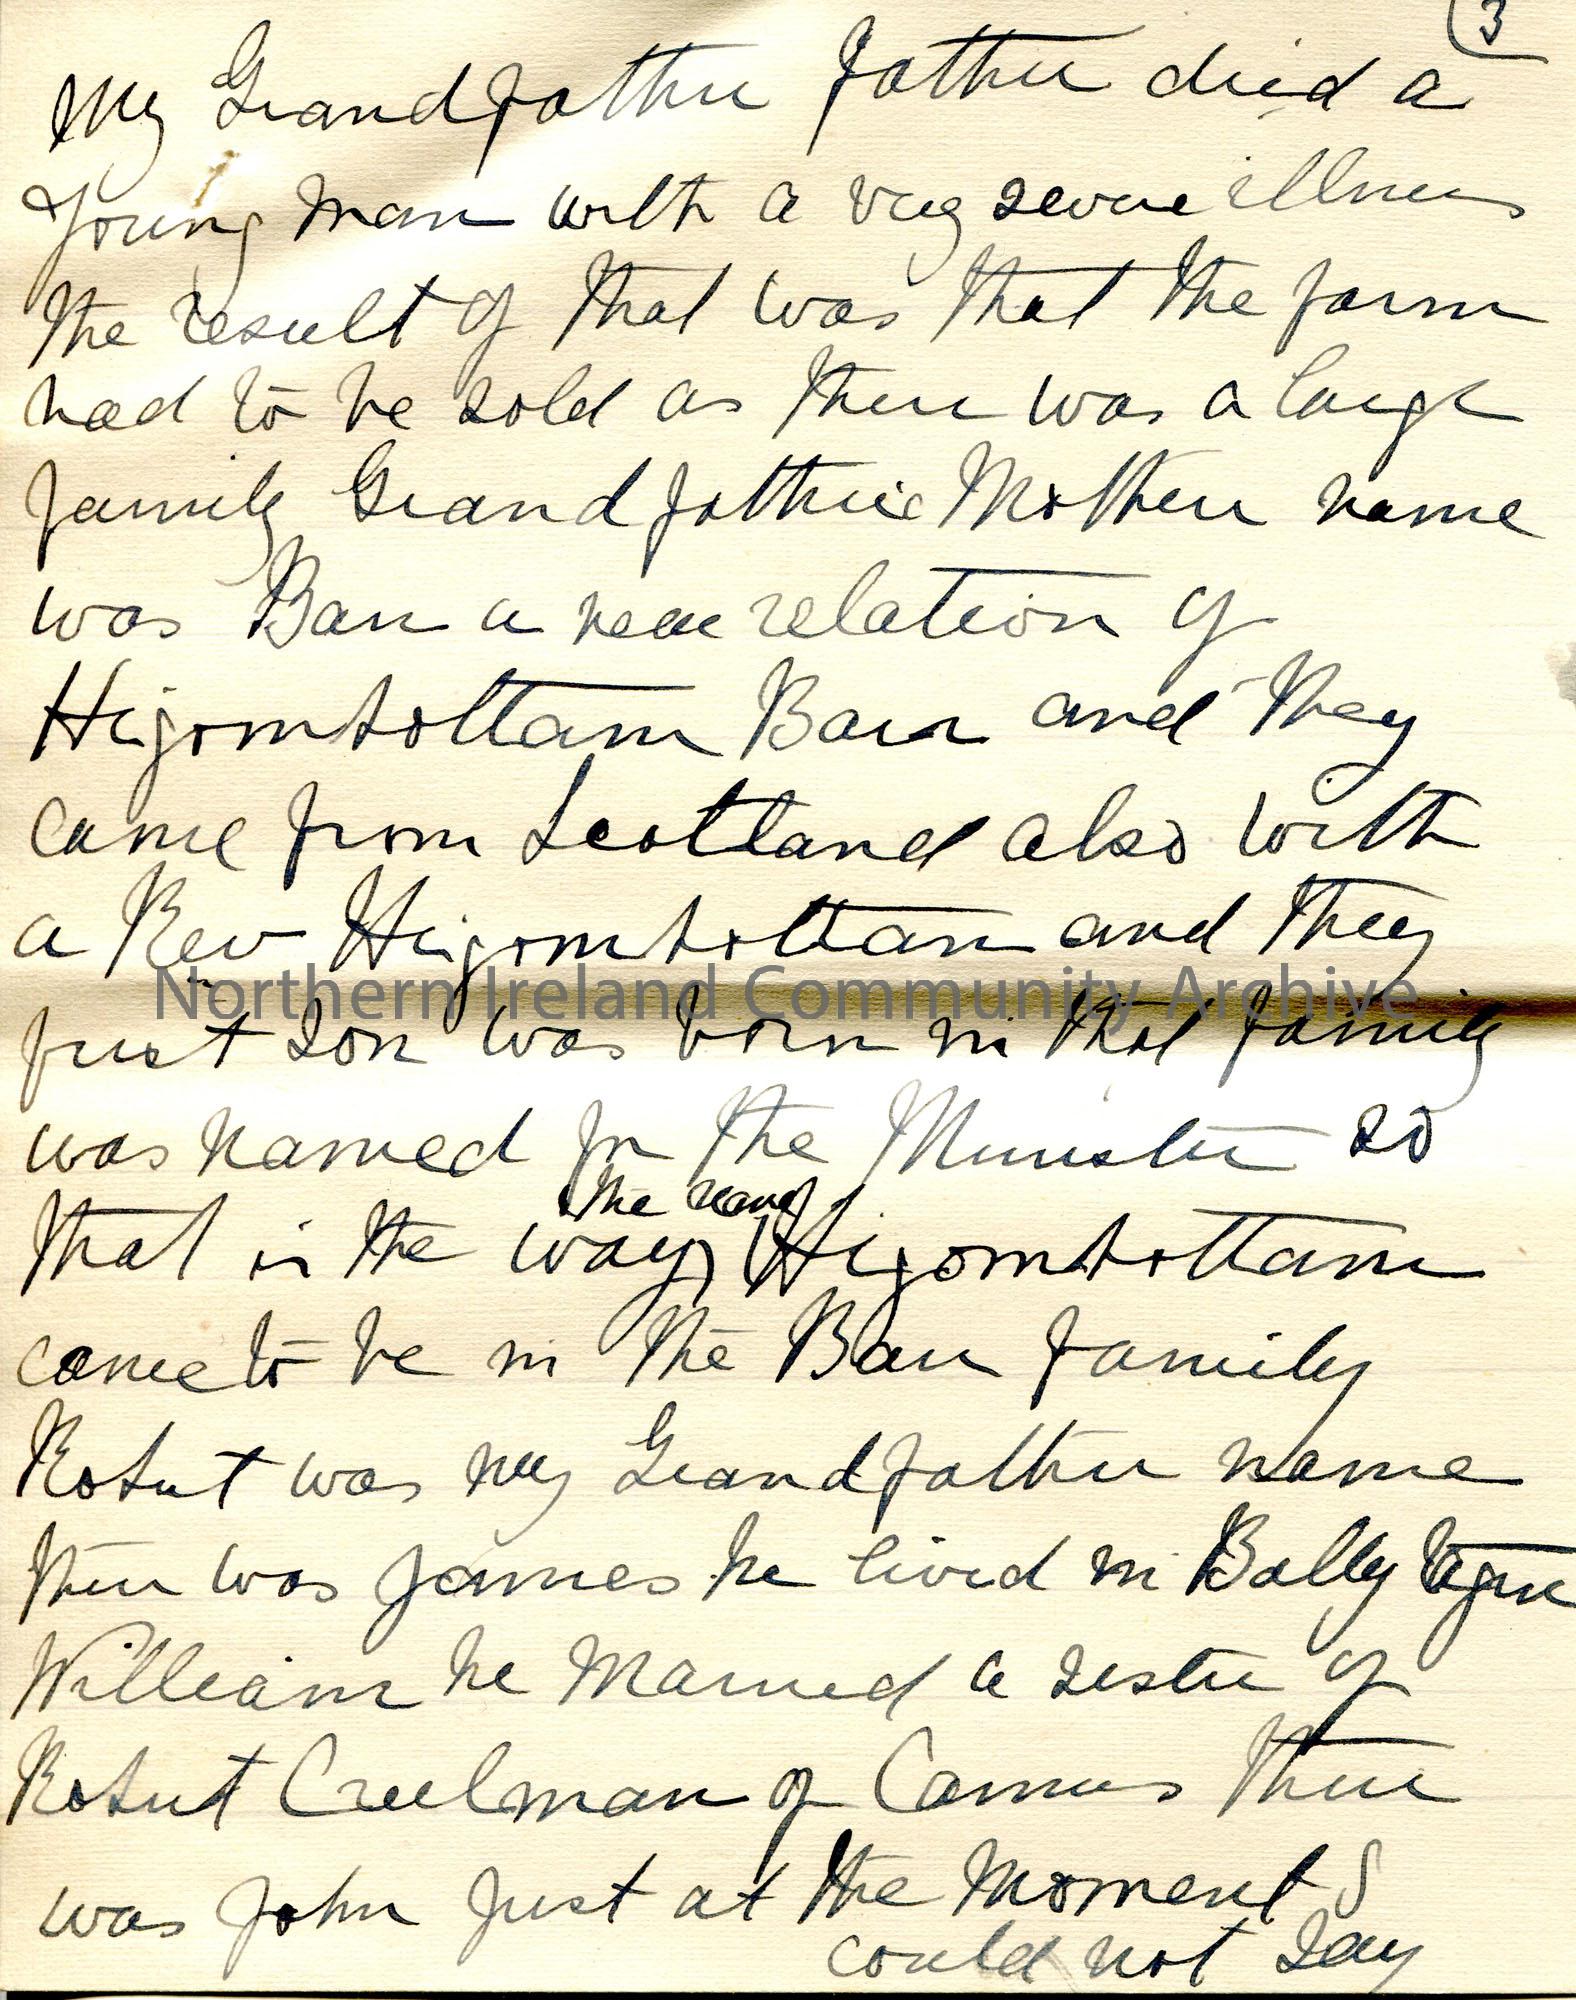 3
My Grandfather Father died a
young man with a very severe illness
the result of that was that the farm
had to be sold as there was a large
family Grandfathers Mother name
was Barr a near relation of
Higombottam Barr and they
came from Scotland also with
a Rev Higombottam and they
first son was born in that family
was named for the Minister so
the name of
that is the way Higombottam
came to be in the Barr family
Robert was my Grandfather name
there was James he lived in Bally
William he married a sister of
Robert Creelman of Camus there
was John just at the moment I
could not say
Northern Ireland Community Archive